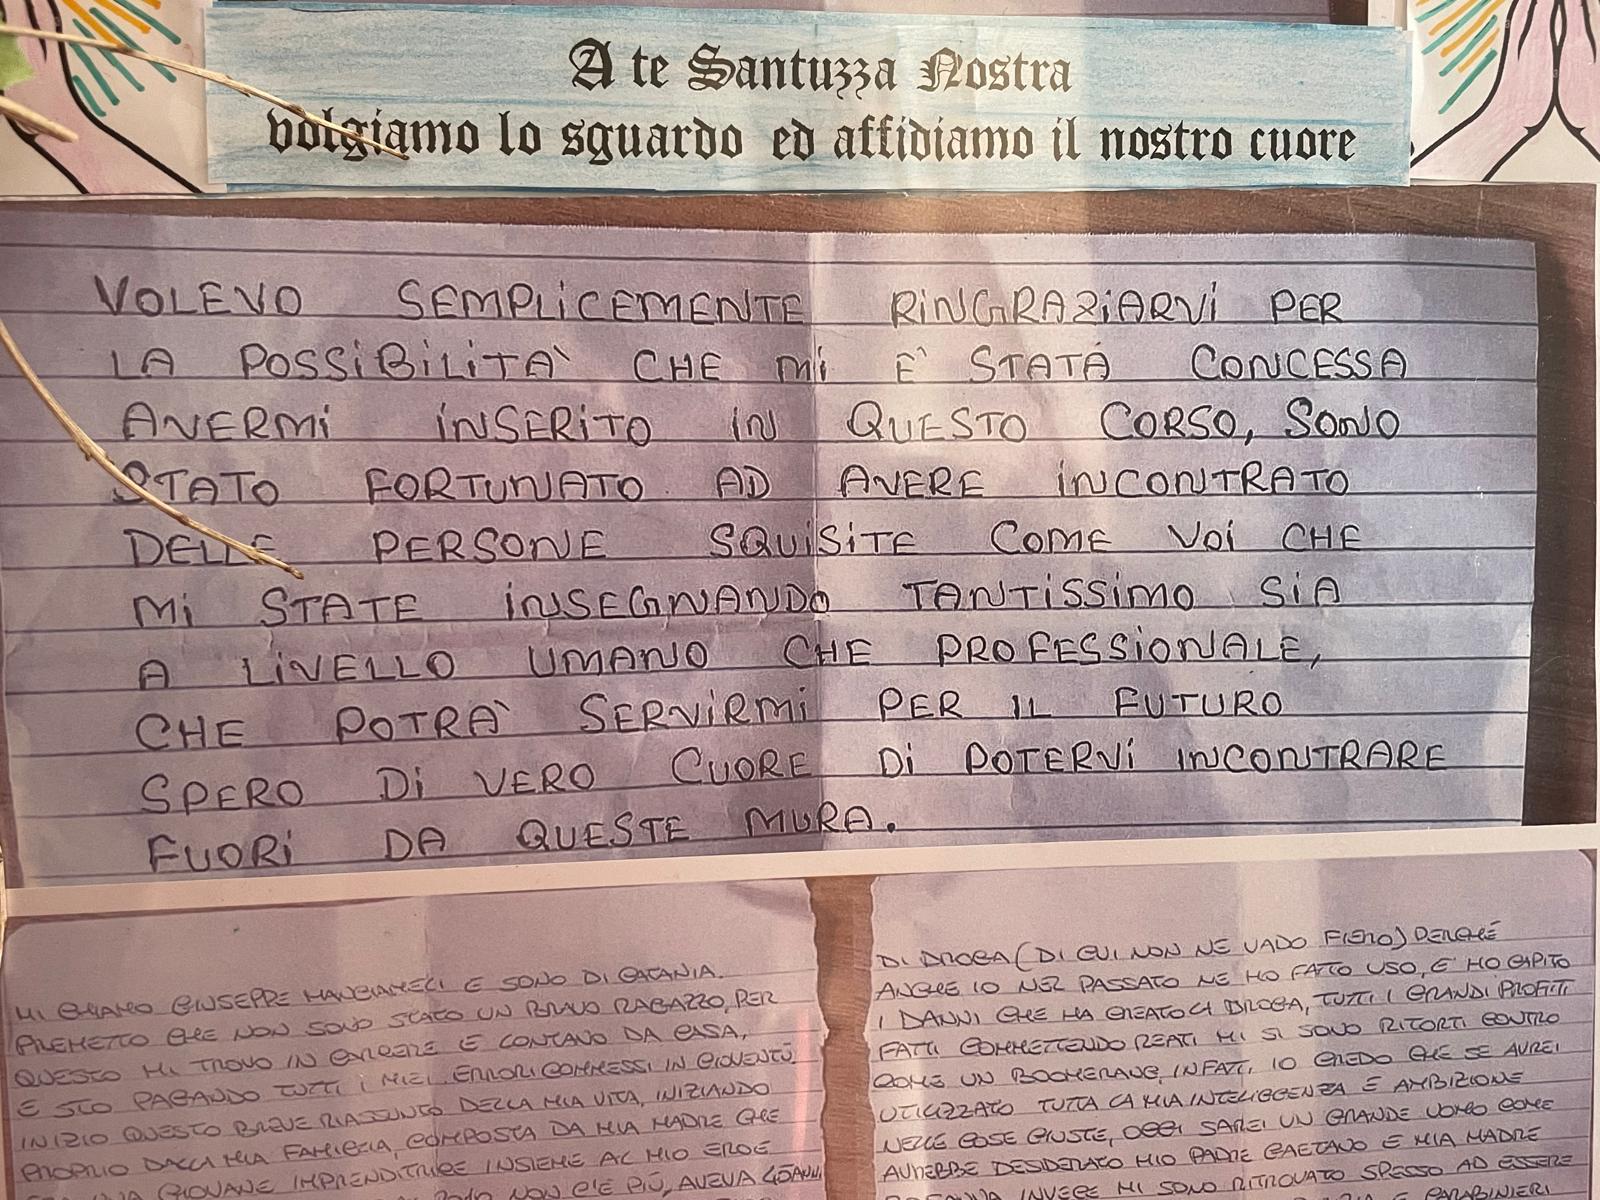 A te Santuzza Nostra
volgiamo lo sguardo ed affidiamo il nostro cuore
VOLEVO SEMPLICEMENTE RINGRAZIARVI PER
LA POSSIBILITA' CHE MI E' STATA CONCESSA
AVERMI INSERITO IN QUESTO CORSO, SONO
STATO FORTUNATO AD AVERE INCONTRATO
DELLE PERSONE SQUISITE COME VOI CHE
MI STATE INSEGNANDO TANTISSIMO SIA
A LIVELLO UMANO CHE PROFESSIONALE,
CHE POTRA' SERVIRMI PER IL FUTURO
SPERO DI VERO CUORE DI POTERVI INCONTRARE
FUORI DA QUESTE MURA.
MI CHIAMO GIUSEPPE MANGIAMELI E SONO DI CATANIA.
PREMETTO CHE NON SONO STATO UN BRAVO RAGAZZO, PER
QUESTO MI TROVO IN CARCERE E LONTANO DA CASA,
E STO PAGANDO TUTTI I MIEI ERRORI COMMESSI IN GIOVENTÙ.
INIZIO QUESTO BREVE RIASSUNTO DELLA MIA VITA, INIZIANDO
PROPRIO DALLA MIA FAMIGLIA, COMPOSTA DA MIA MADRE CHE
UNA GIOVANE IMPRENDITRICE INSIEME AL MIO EROE
NON C'E PIÙ, AVEVA
DI DROGA (DI CUI NON NE VADO FIERO) PERCHÉ
ANCHE IO NEL PASSATO NE HO FATTO USO, E HO CAPITO
I DANNI CHE HA CREATO LA DROGA, TUTTI I GRANDI PROFITTI
FATTI COMMETTENDO REATI MI SI SONO RITORTI CONTRO
COME UN BOOMERANG, INFATI, IO CREDO CHE SE AVREI
UTILIZZATO TUTTA LA MIA INTELIGGENZA E AMBIZIONE
NELLE COSE GIUSTE, OGGI SAREI UN GRANDE UOMO COME
AVREBBE DESIDERATO MIO PADRE GAETANO E MIA MADRE
INVECE MI SONO RITROVATO SPESSO AD ESSERE
CARABINIERI